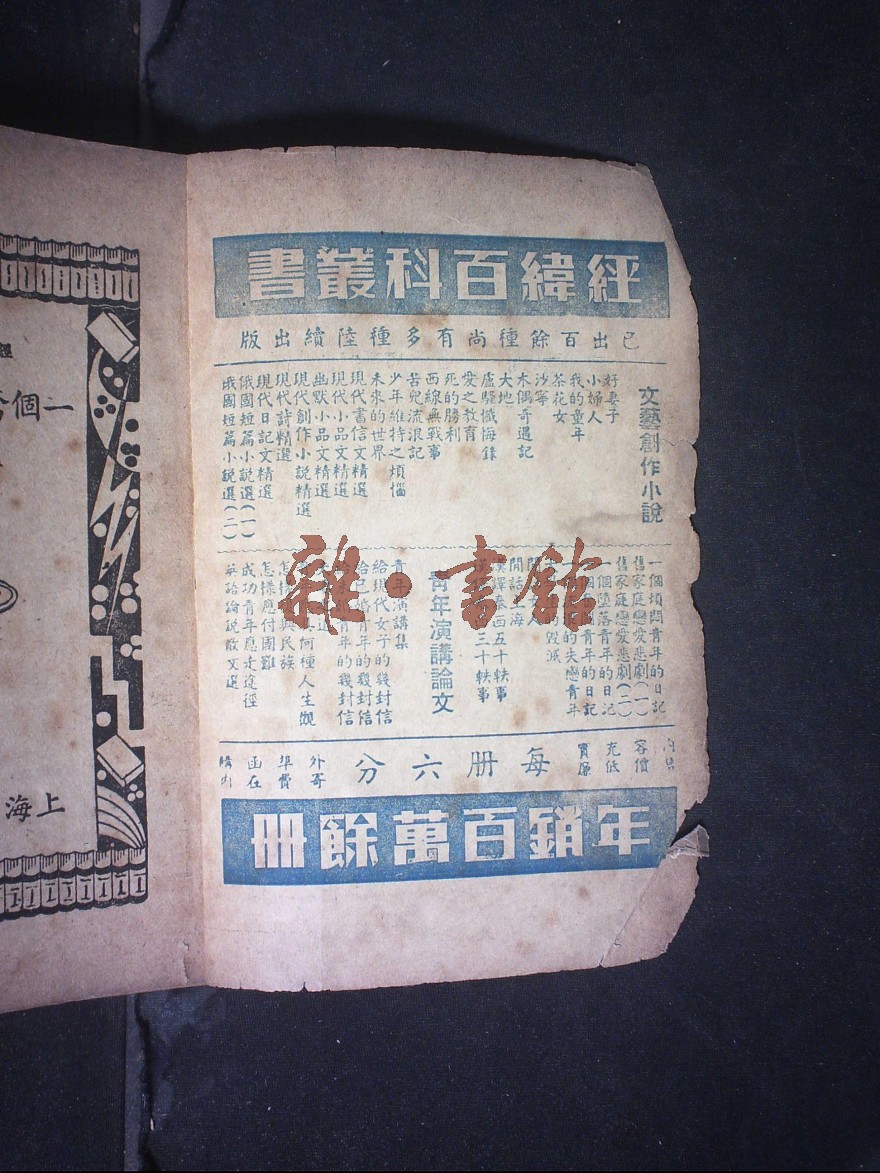 經緯百科叢書
已出百餘種尚有多種陸續出版
文藝創作小說
好妻子
小婦人
我的童年
茶花女
沙寧
木偶奇遇記
大地
盧騷懺悔錄
愛之教育
死的勝利
西線無戰事
苦兒流浪記
少年維特之煩惱
未來的世界
現代書信文精選
現代小品文精選
幽默小品文精選
現代創作小說精選
現代詩精選
現代日記文精選
俄國短篇小說選(一)
俄國短篇小說選(二)
一個煩悶青年的日記
舊家庭戀愛悲劇(一)
舊家庭戀愛悲劇(二)
一個墮落青年的日記
青年的日記
的失戀青年
的毀滅
閒話上海
漢譯泰西五十軼事
三十軼事
青年演講論文
青年演講集
給現代女子的幾封信
給已婚青年的幾封信
青年的幾封信
何種人生觀
與民族
怎樣應付國難
成功青年應走途徑
英語論說散文選
內
容
充
實
價
低
廉
每册六分
外埠函
寄費在
年銷百萬餘冊
一個
上海
雜·書館